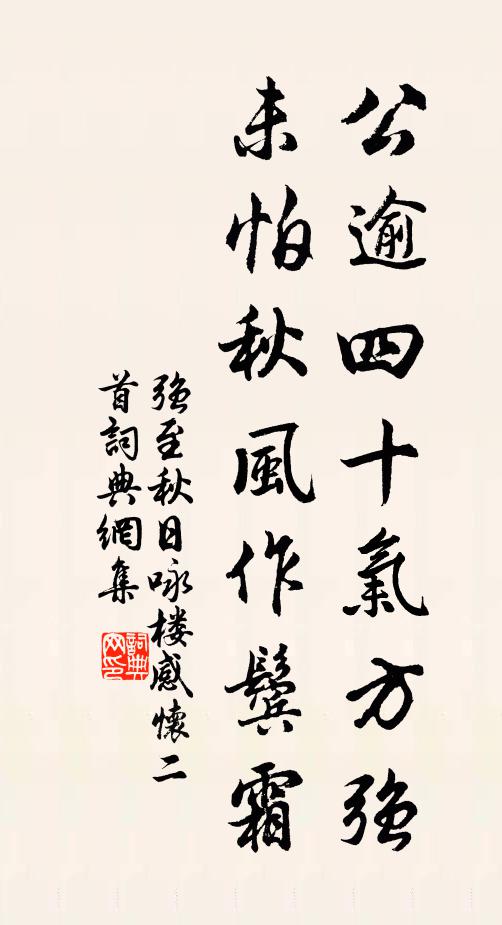 公逾四十氣方強
未怕秋風作鬢霜
強至秋日咏楼感懷二
首詞典網集
詞典网印